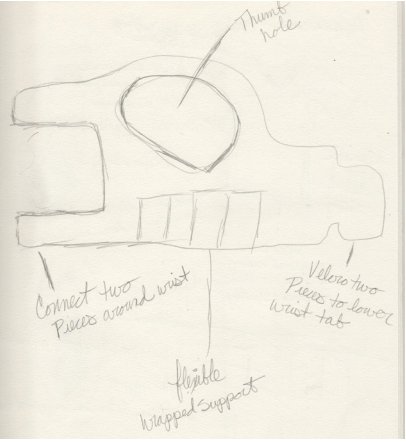 Thumb
hole
Connect two
Pieces around wrist
Velcro two
Pieces to lower
wrist tab
flexible
wrapped support